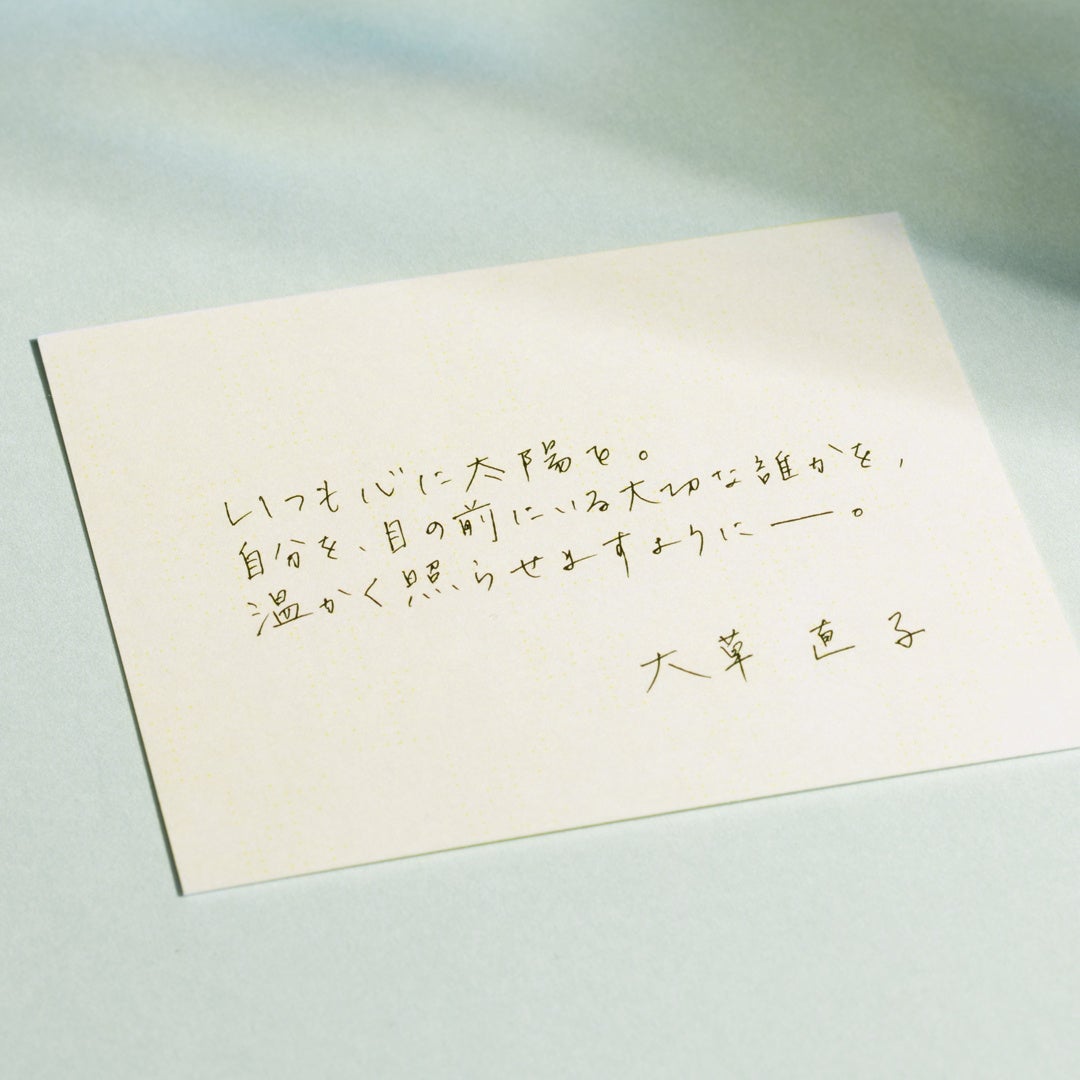 いつも心に太陽を。
自分を、目の前にいる大切な誰かを、
温かく照らせますように——。
大草 直子